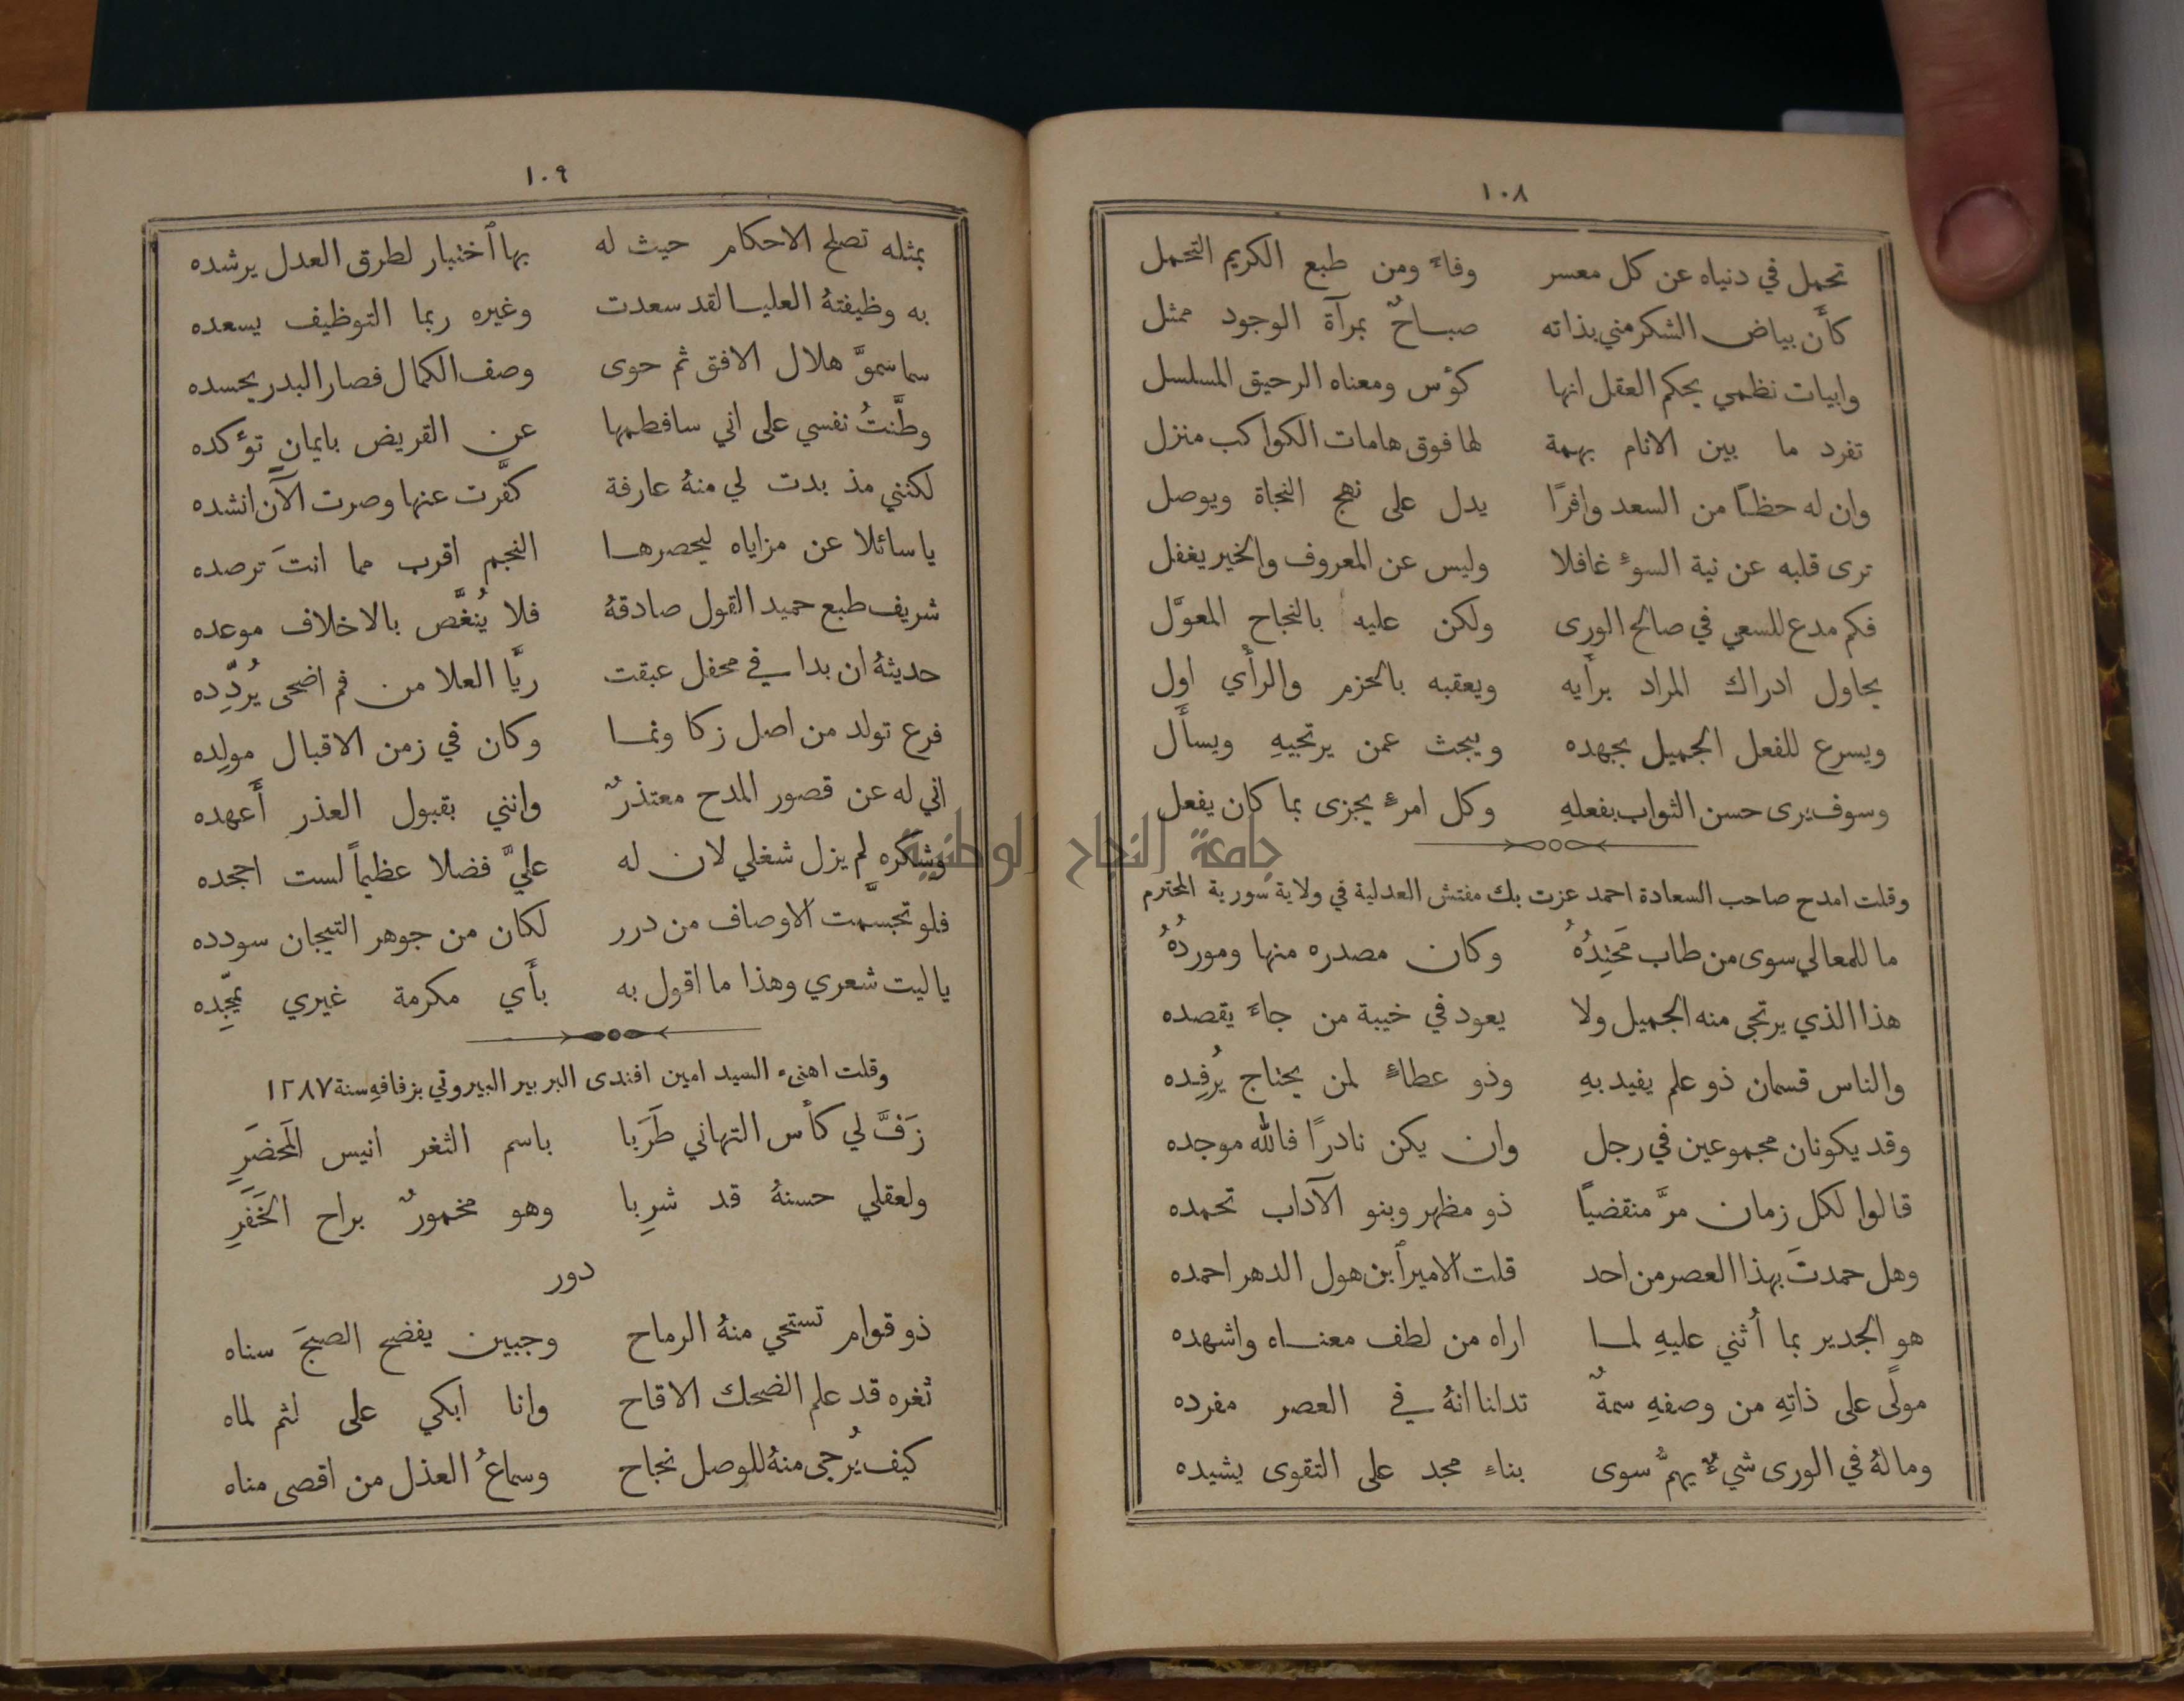 ١٠٨
تحمل في دنياه عن كل معسر وفاءً ومن طبع الكريم التحمل
كأَن بياض الشكر مني بذاته صباحٌ بمرآة الوجود ممثل
وابيات نظمي يحكم العقل انها كؤس ومعناه الرحيق المسلسل
تفرد ما بين الانام بهمة لها فوق هامات الكواكب منزل
وان له حظاً من السعد وافرًا يدل على نهج النجاة ويوصل
ترى قلبه عن نية السوءِ غافلا وليس عن المعروف والخير يغفل
فكم مدع للسعي في صالح الورى ولكن عليه بالنجاح المعوَّل
يحاول ادراك المراد برأيه ويعقبه بالحزم والرأْي اول
ويسرع للفعل الجميل بجهده ويبحث عمن يرتجيهِ ويسأَل
وسوف يرى حسن الثواب بفعلهِ وكل امرءٍ يجزى بما كان يفعل
وقلت امدح صاحب السعادة احمد عزت بك مفتش العدلية في ولاية سورية المحترم
ما للمعالي سوى من طاب مَحتِدُهُ وكان مصدره منها وموردُهُ
هذا الذي يرتجى منه الجميل ولا يعود في خيبة من جاءَ يقصده
والناس قسمان ذو علم يفيد بهِ وذو عطاءٍ لمن يحتاج يُرفِده
وقد يكونان مجموعين في رجل وان يكن نادرًا فالله موجده
قالوا لكل زمان مرَّ منقضياً ذو مظهر وبنو الآداب تحمده
وهل حمدتَ بهذا العصر من احد قلت الامير أبن هول الدهر احمده
هو الجدير بما أُثني عليهِ لما اراه من لطف معناه واشهده
مولًى على ذاتهِ من وصفهِ سمةٌ تدلنا انهُ في العصر مفرده
وما لهُ في الورى شيءٌ يهمُّ سوى بناءِ مجد على التقوى يشيده
١٠٩
بمثله تصلح الاحكام حيث له بها أختبار لطرق العدل يرشده
به وظيفتهُ العليا لقد سعدت وغيره ربما التوظيف يسعده
سما سموَّ هلال الافق ثم حوى وصف الكمال فصار البدر يحسده
وطَّنتُ نفسي على اني سافطمها عن القريض بايمانٍ تؤكده
لكنني مذ بدت لي منهُ عارفة كفَّرت عنها وصرت الآن انشده
يا سائلا عن مزاياه ليحصرها النجم اقرب مما انتَ ترصده
شريف طبع حميد القول صادقهُ فلا يُنغَّص بالاخلاف موعده
حديثهُ ان بدا في محفل عبقت ريَّا العلا من فم اضحى يُردِّده
فرع تولد من اصل زكا ونما وكان في زمن الاقبال مولِده
اني له عن قصور المدح معتذرٌ وانني بقبول العذر أَعهده
وشكره لم يزل شغلي لان له عليَّ فضلا عظيماً لست اجحده
فلو تجسَّمت الاوصاف من درر لكان من جوهر التيجان سودده
يا ليت شعري وهذا ما اقول به بأَي مكرمة غيري يمجِّده
وقلت اهنىء السيد امين افندى البربير البيروتي بزفافهِ سنة ١٢٨٧
زَفَّ لي كأس التهاني طَرَبا باسم الثغر انيس المَحضَرِ
ولعقلي حسنهُ قد شرِبا وهو مخمورٌ براح الخَفَرِ
دور
ذو قوام تستحي منهُ الرماح وجبين يفضح الصبحَ سناه
ثغره قد علم الضحك الاقاح وانا ابكي على لثم لماه
كيف يُرجى منهُ للوصل نجاح وسماعُ العذل من اقصى مناه
جامعة النجاح الوطنية